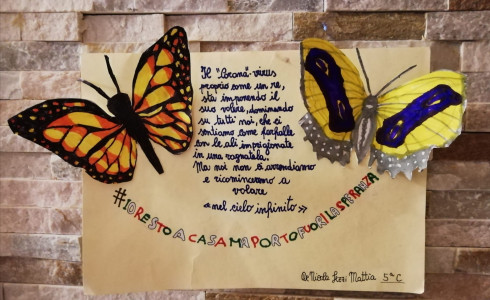 Il "Corona" virus
proprio come un re,
sta imponendo il
suo volere, dominando
su tutti noi, che ci
sentiamo come farfalle
con le ali imprigionate
in una ragnatela.
Ma noi non ci arrendiamo
e ricominceremo a
volare
«nel cielo infinito»
#IORESTO A CASA MA PORTO FUORI LA SPERANZA
De Nicola Mattia 5ª C